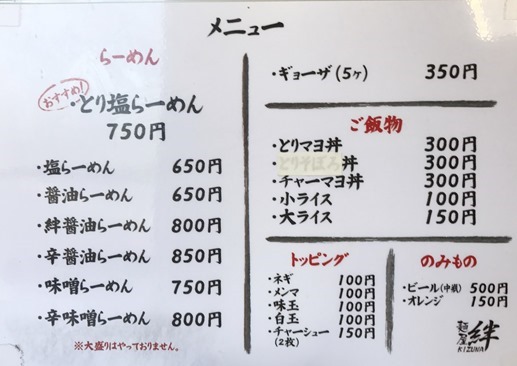 メニュー
らーめん
おすすめ!
・とり塩らーめん
750円
・塩らーめん 650円
・醤油らーめん 650円
・絆醤油らーめん 800円
・辛醤油らーめん 850円
・味噌らーめん 750円
・辛味噌らーめん 800円
※大盛りはやっておりません。
・ギョーザ(5ヶ) 350円
ご飯物
・とりマヨ丼 300円
・とりそぼろ丼 300円
・チャーマヨ丼 300円
・小ライス 100円
・大ライス 150円
トッピング
・ネギ 100円
・メンマ 100円
・味玉 100円
・白玉 100円
・チャーシュー 150円
(2枚)
のみもの
・ビール(中瓶) 500円
・オレンジ 150円
麺屋 絆
KIZUNA